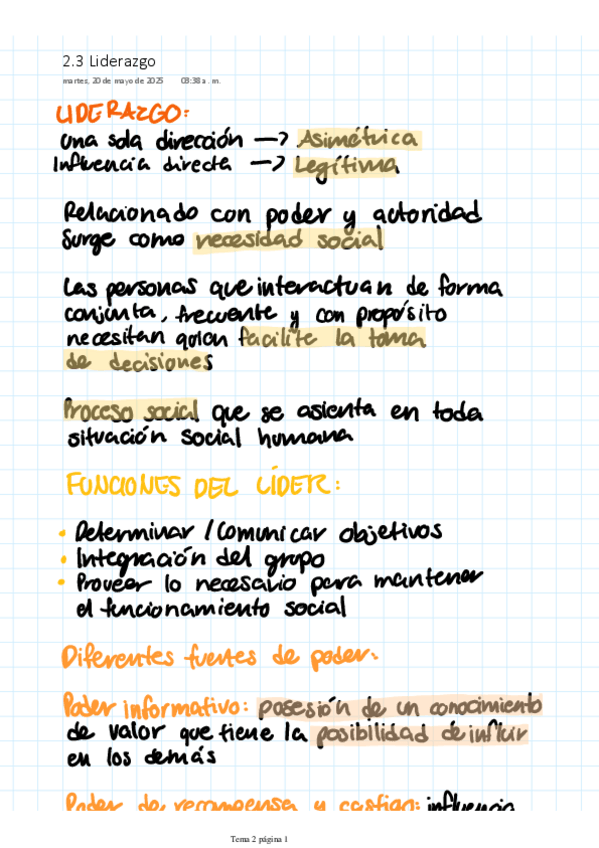 2.3 Liderazgo
martes, 20 de mayo de 2025 03:38 a. m.
LIDERAZGO:
Una sola dirección —> Asimétrica
Influencia directa —> Legítima
Relacionado con poder y autoridad
Surge como necesidad social
Las personas que interactúan de forma
conjunta, frecuente y con propósito
necesitan quien facilite la toma
de decisiones
Proceso social que se asienta en toda
situación social humana
FUNCIONES DEL LÍDER:
• Determinar / Comunicar objetivos
• Integración del grupo
• Proveer lo necesario para mantener
el funcionamiento social
Diferentes fuentes de poder:
Poder informativo: posesión de un conocimiento
de valor que tiene la posibilidad de influir
en los demás
Poder de recompensa y castigo: influencia
Tema 2 página 1